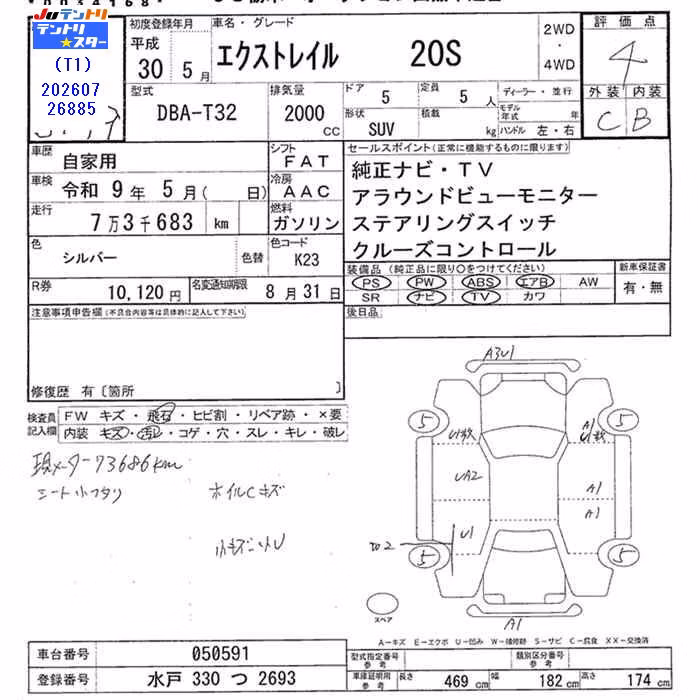 JU テントリ
テントリ
スター
(T1)
202607
26885
初度登録年月
平成
30 年 5 月
車名・グレード
エクストレイル 20S
2WD
・
4WD
評価点
4
外装 内装
C B
型式
DBA-T32
排気量
2000 CC
ドア 5
定員 5 人
形状 SUV
積載 kg
ディーラー・並行
モデル年式 年
ハンドル 左・右
車歴 自家用
シフト FAT
車検 令和 9 年 5 月( 日)
冷房 AAC
走行 7万3千683 km
燃料 ガソリン
色 シルバー 色替
色コード K23
R券 10,120円
名変通知期限 8月31日
セールスポイント(正常に機能するものに限ります)
純正ナビ・TV
アラウンドビューモニター
ステアリングスイッチ
クルーズコントロール
装備品 (純正品に限り○をつけてください)
PS PW ABS エアB AW
SR ナビ TV カワ
新車保証書
有・無
後日品
注意事項申告欄(不具合内容等は具体的に記入して下さい)
修復歴 有〔箇所
検査員記入欄
FW キズ・飛石・ヒビ割・リペア跡・×要
内装 キズ・汚レ・コゲ・穴・スレ・キレ・破レ
現メーター73686km
シート小スタリ
ホイルCキズ
小キズ小U
A3U1
5
5
U1数
A1
U1数
UA2
A1
A1
U1
5
5
A1
スペア
A-キズ E-エクボ U-凹み W-補修跡 S-サビ C-腐食 XX-交換済
車台番号 050591
登録番号 水戸 330 つ 2693
型式指定番号
参考
類別区分番号
参考
車庫証明用
参考
長さ 469 cm
幅 182 cm
高さ 174 cm